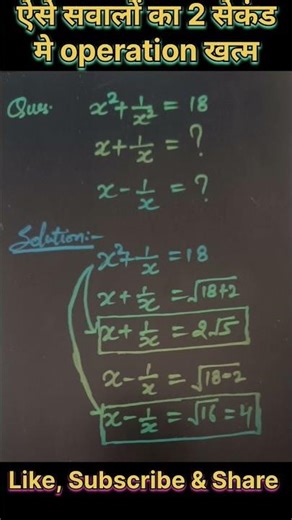 ऐसे सवालों का 2 सेकंड
मे operation खत्म
Ques. x² + 1/x² = 18
x + 1/x = ?
x - 1/x = ?
Solution:-
x² + 1/x = 18
x + 1/x = √18+2
x + 1/x = 2√5
x - 1/x = √18-2
x - 1/x = √16 = 4
Like, Subscribe & Share